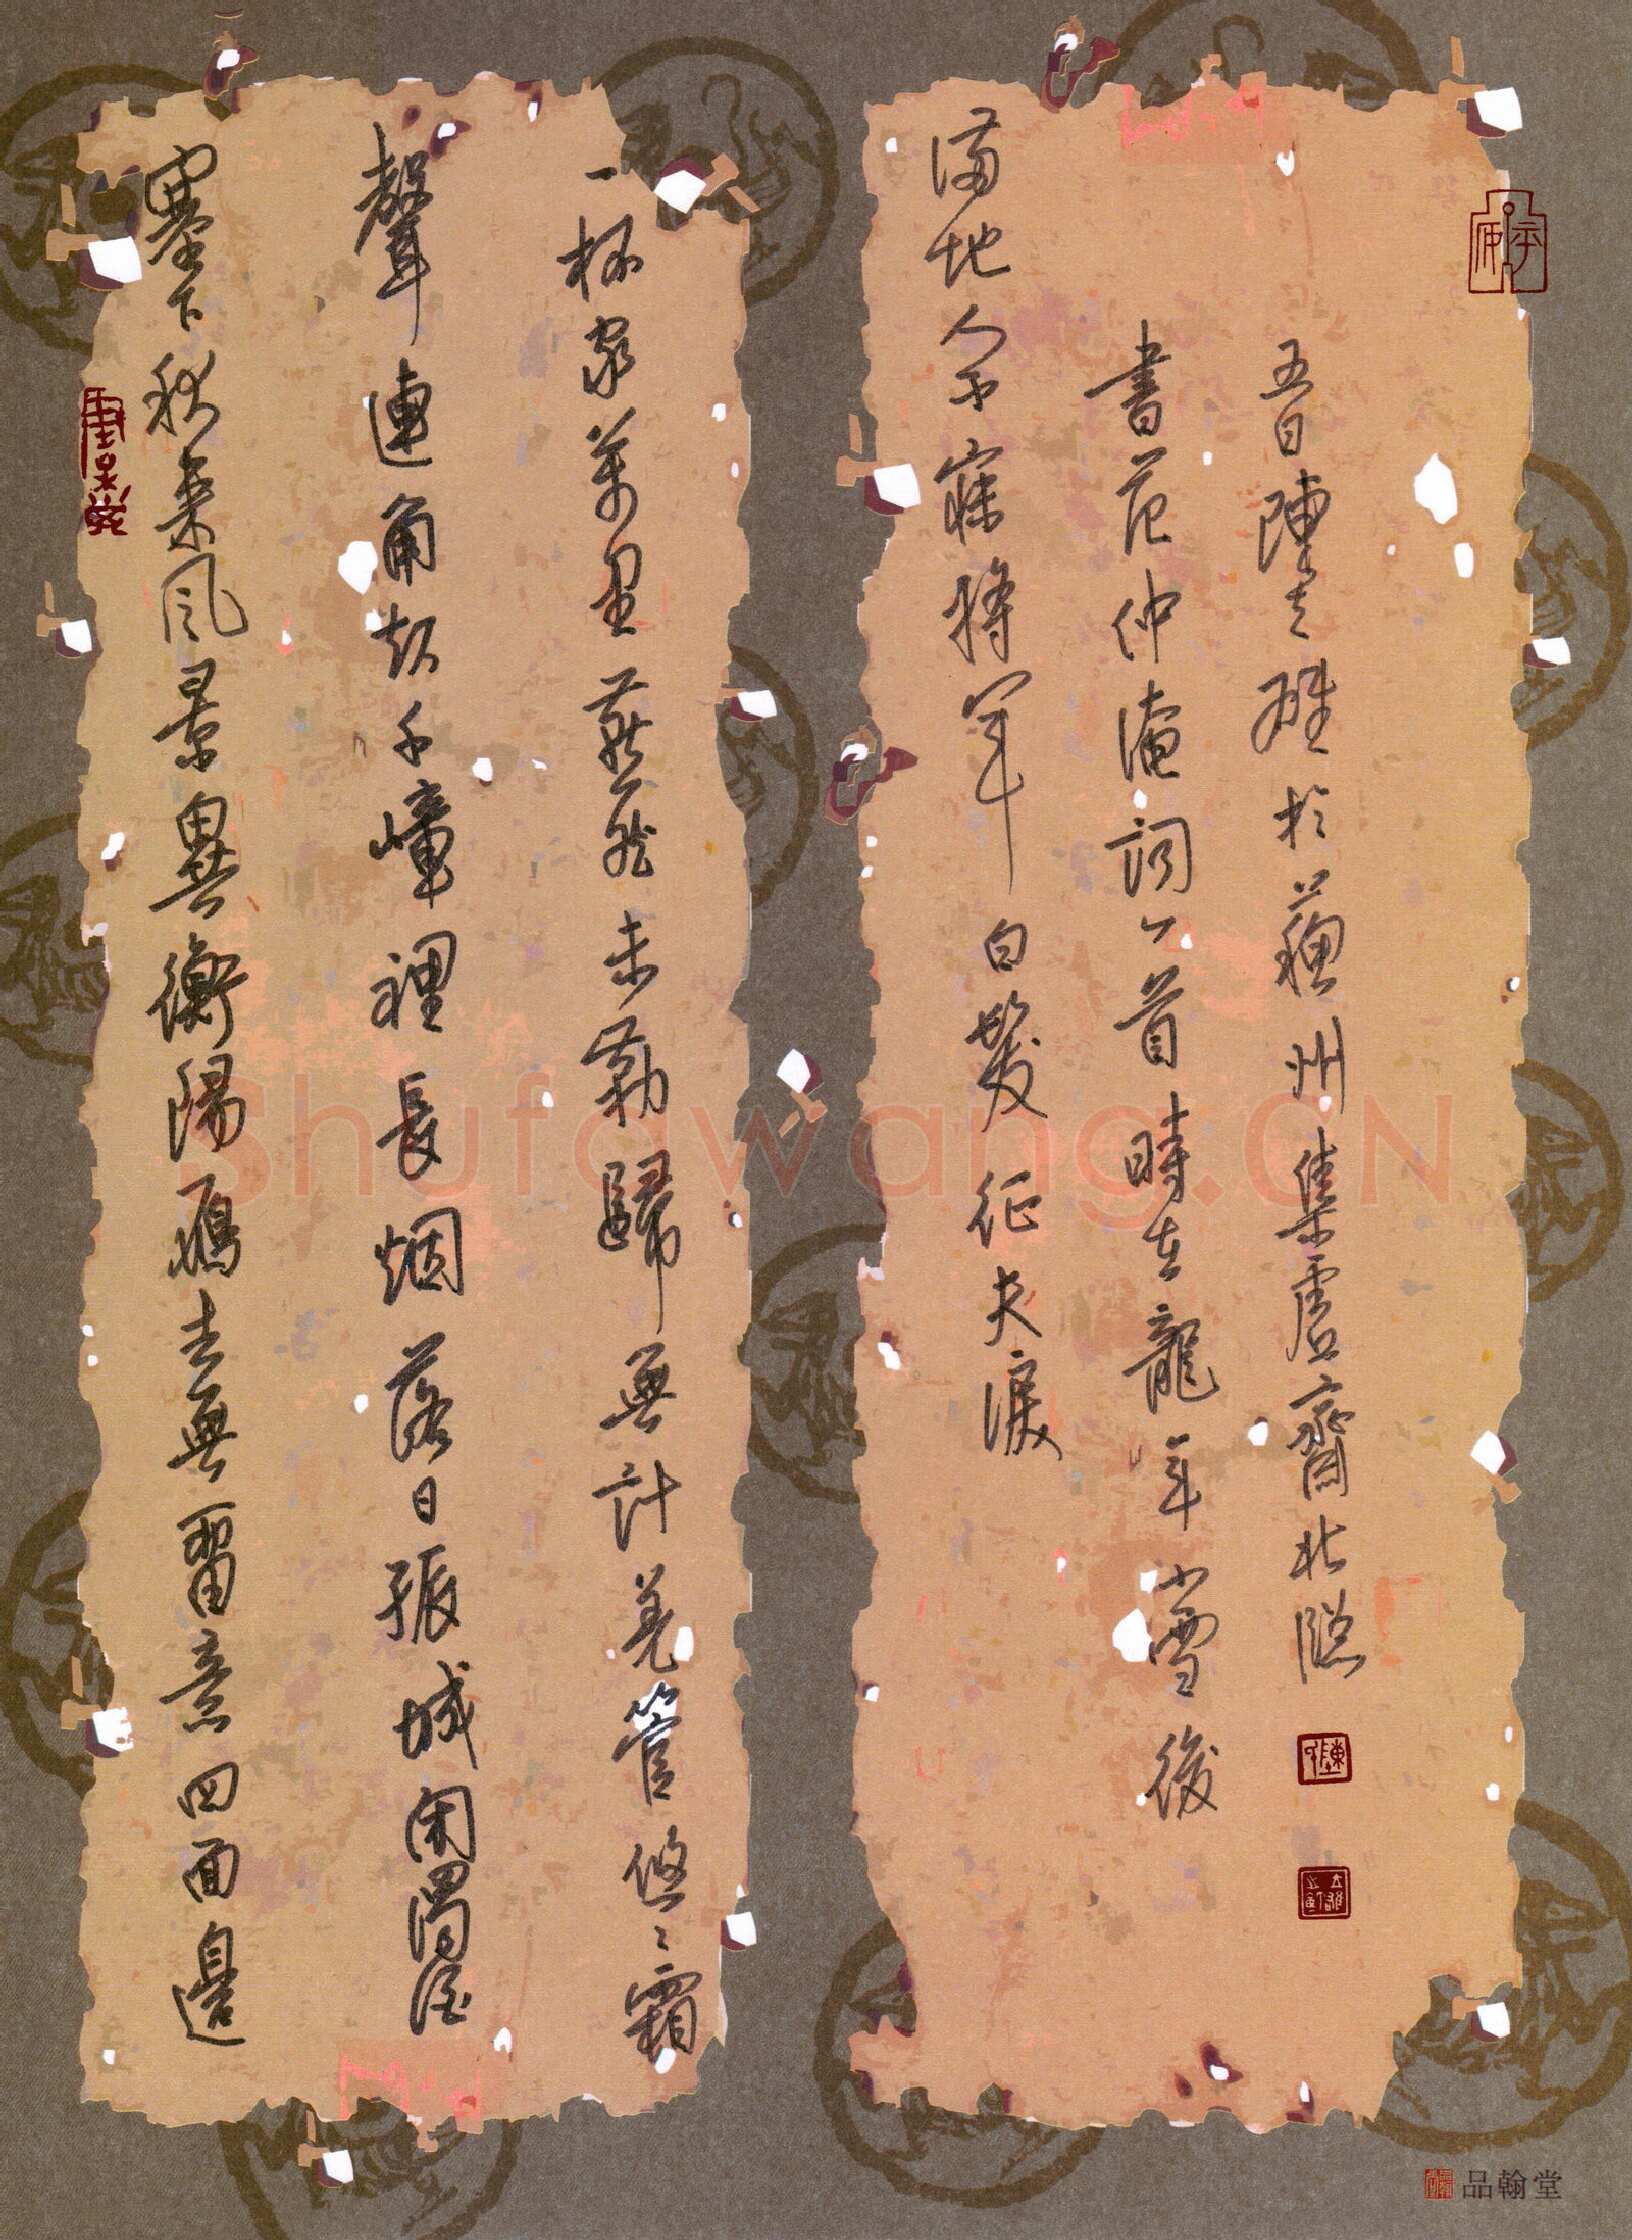 塞下秋來風景異衡陽鴈去無留意四面邊
聲連角起千嶂裡長烟落日孤城閉濁酒
一杯家萬里燕然未勒歸無計羌管悠〻霜
滿地人不寐將軍白髮征夫淚
書范仲淹詞一首時在龍年小雪後
五日陳立雄於蘇州集虛齋北牕
Shufawang.CN
品翰堂